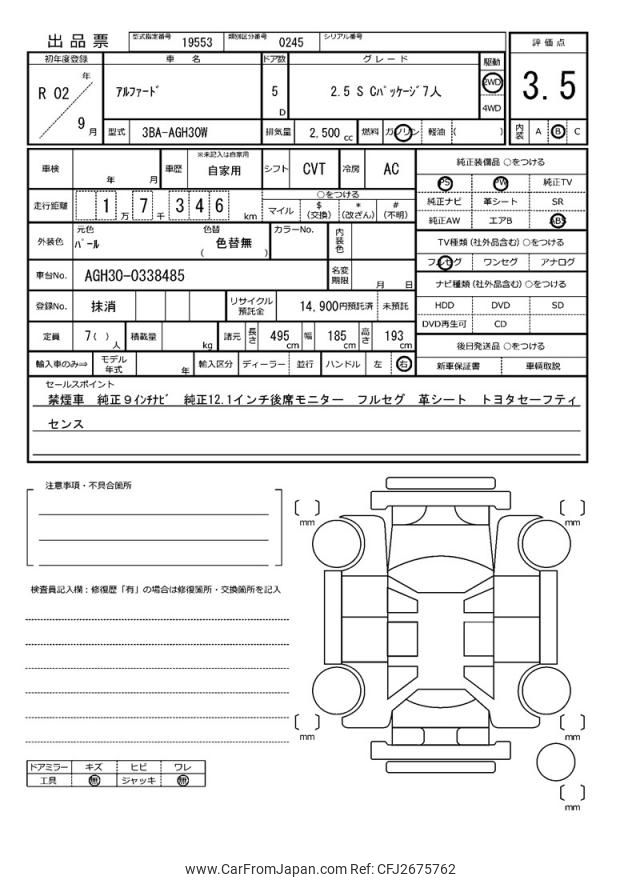 出品票 型式指定番号 19553 類別区分番号 0245 シリアル番号
評価点
3.5
内装 A B C
初年度登録 車名 ドア数 グレード 駆動
R 02 年 9 月
アルファード 5 D 2.5 S Cパッケージ7人 2WD 4WD
型式 3BA-AGH30W 排気量 2,500 cc 燃料 ガソリン 軽油 ( )
車検 年 月 車歴 ※未記入は自家用 自家用 シフト CVT 冷房 AC
走行距離 1 万 7 千 3 4 6 km ○をつける
マイル $(交換) *(改ざん) #(不明)
外装色 元色 パール 色替 色替無 ( ) カラーNo. 内装色
車台No. AGH30-0338485 名変期限 月 日
登録No. 抹消 リサイクル預託金 14,900円預託済 未預託
定員 7( ) 人 積載量 kg 諸元 長さ 495 cm 幅 185 cm 高さ 193 cm
輸入車のみ⇒ モデル年式 年 輸入区分 ディーラー 並行 ハンドル 左 右
純正装備品 ○をつける
PS PW 純正TV
純正ナビ 革シート SR
純正AW エアB ABS
TV種類 (社外品含む) ○をつける
フルセグ ワンセグ アナログ
ナビ種類 (社外品含む) ○をつける
HDD DVD SD
DVD再生可 CD
後日発送品 ○をつける
新車保証書 車輌取説
セールスポイント
禁煙車 純正9インチナビ 純正12.1インチ後席モニター フルセグ 革シート トヨタセーフティ
センス
注意事項・不具合箇所
検査員記入欄:修復歴「有」の場合は修復箇所・交換箇所を記入
mm
mm
mm
mm
mm
ドアミラー キズ ヒビ ワレ
工具 無 ジャッキ 無
www.CarFromJapan.com Ref: CFJ2675762